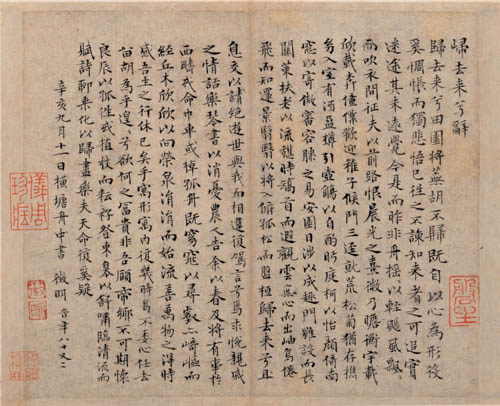 歸去来兮辭
歸去来兮田園將蕪胡不歸既自以心為形役
奚惆悵而獨悲悟已往之不諫知来者之可追實
迷途其未遠覺今是而昨非舟搖搖以輕颺風飄飄
而吹衣問征夫以前路恨晨光之熹微乃瞻衡宇載
欣載奔僮僕歡迎稚子候門三逕就荒松菊猶存携
幼入室有酒盈罇引壺觴以自酌眄庭柯以怡顏倚南
窓以寄傲審容膝之易安園日涉以成趣門雖設而長
關策扶老以流憩時矯首而遐觀雲無心而出岫鳥倦
飛而知還景翳翳以將入撫孤松而盤桓歸去来兮且
息交以請絕遊世與我而相遺復駕言兮焉求悅親戚
之情話樂琴書以消憂農人告余以春及將有事於
西疇或命巾車或棹孤舟既窈窕以尋壑亦崎嶇而
經丘木欣欣以向榮泉涓涓而始流善萬物之得時
感吾生之行休已矣乎寓形宇內復幾時曷不委心任去
留胡為乎遑遑兮欲何之富貴非吾願帝鄉不可期懷
良辰以孤往或植杖而耘耔登東皋以舒嘯臨清流而
賦詩聊乘化以歸盡樂夫天命復奚疑
辛亥九月十一日橫塘舟中書 徵明 時年八十又二